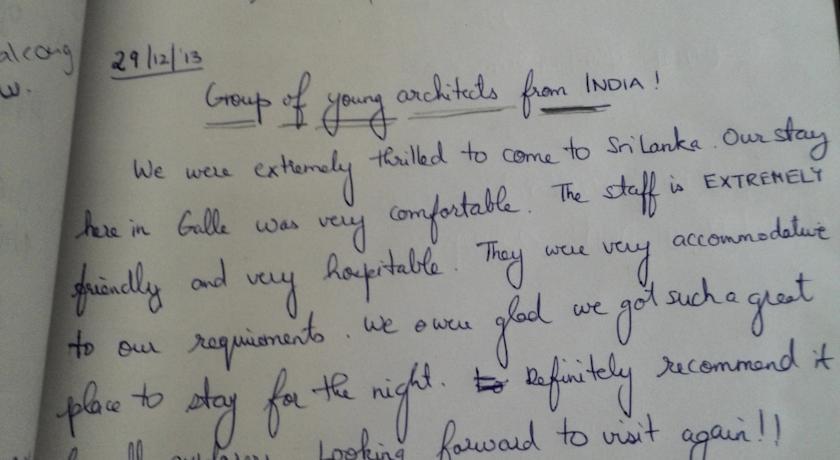 29/12/'13
Group of young architects from INDIA!
We were extremely thrilled to come to Sri Lanka. Our stay
here in Galle was very comfortable. The staff is EXTREMELY
friendly and very hospitable. They were very accommodative
to our requirements. We owere glad we got such a great
place to stay for the night. Definitely recommend it
Looking forward to visit again!!